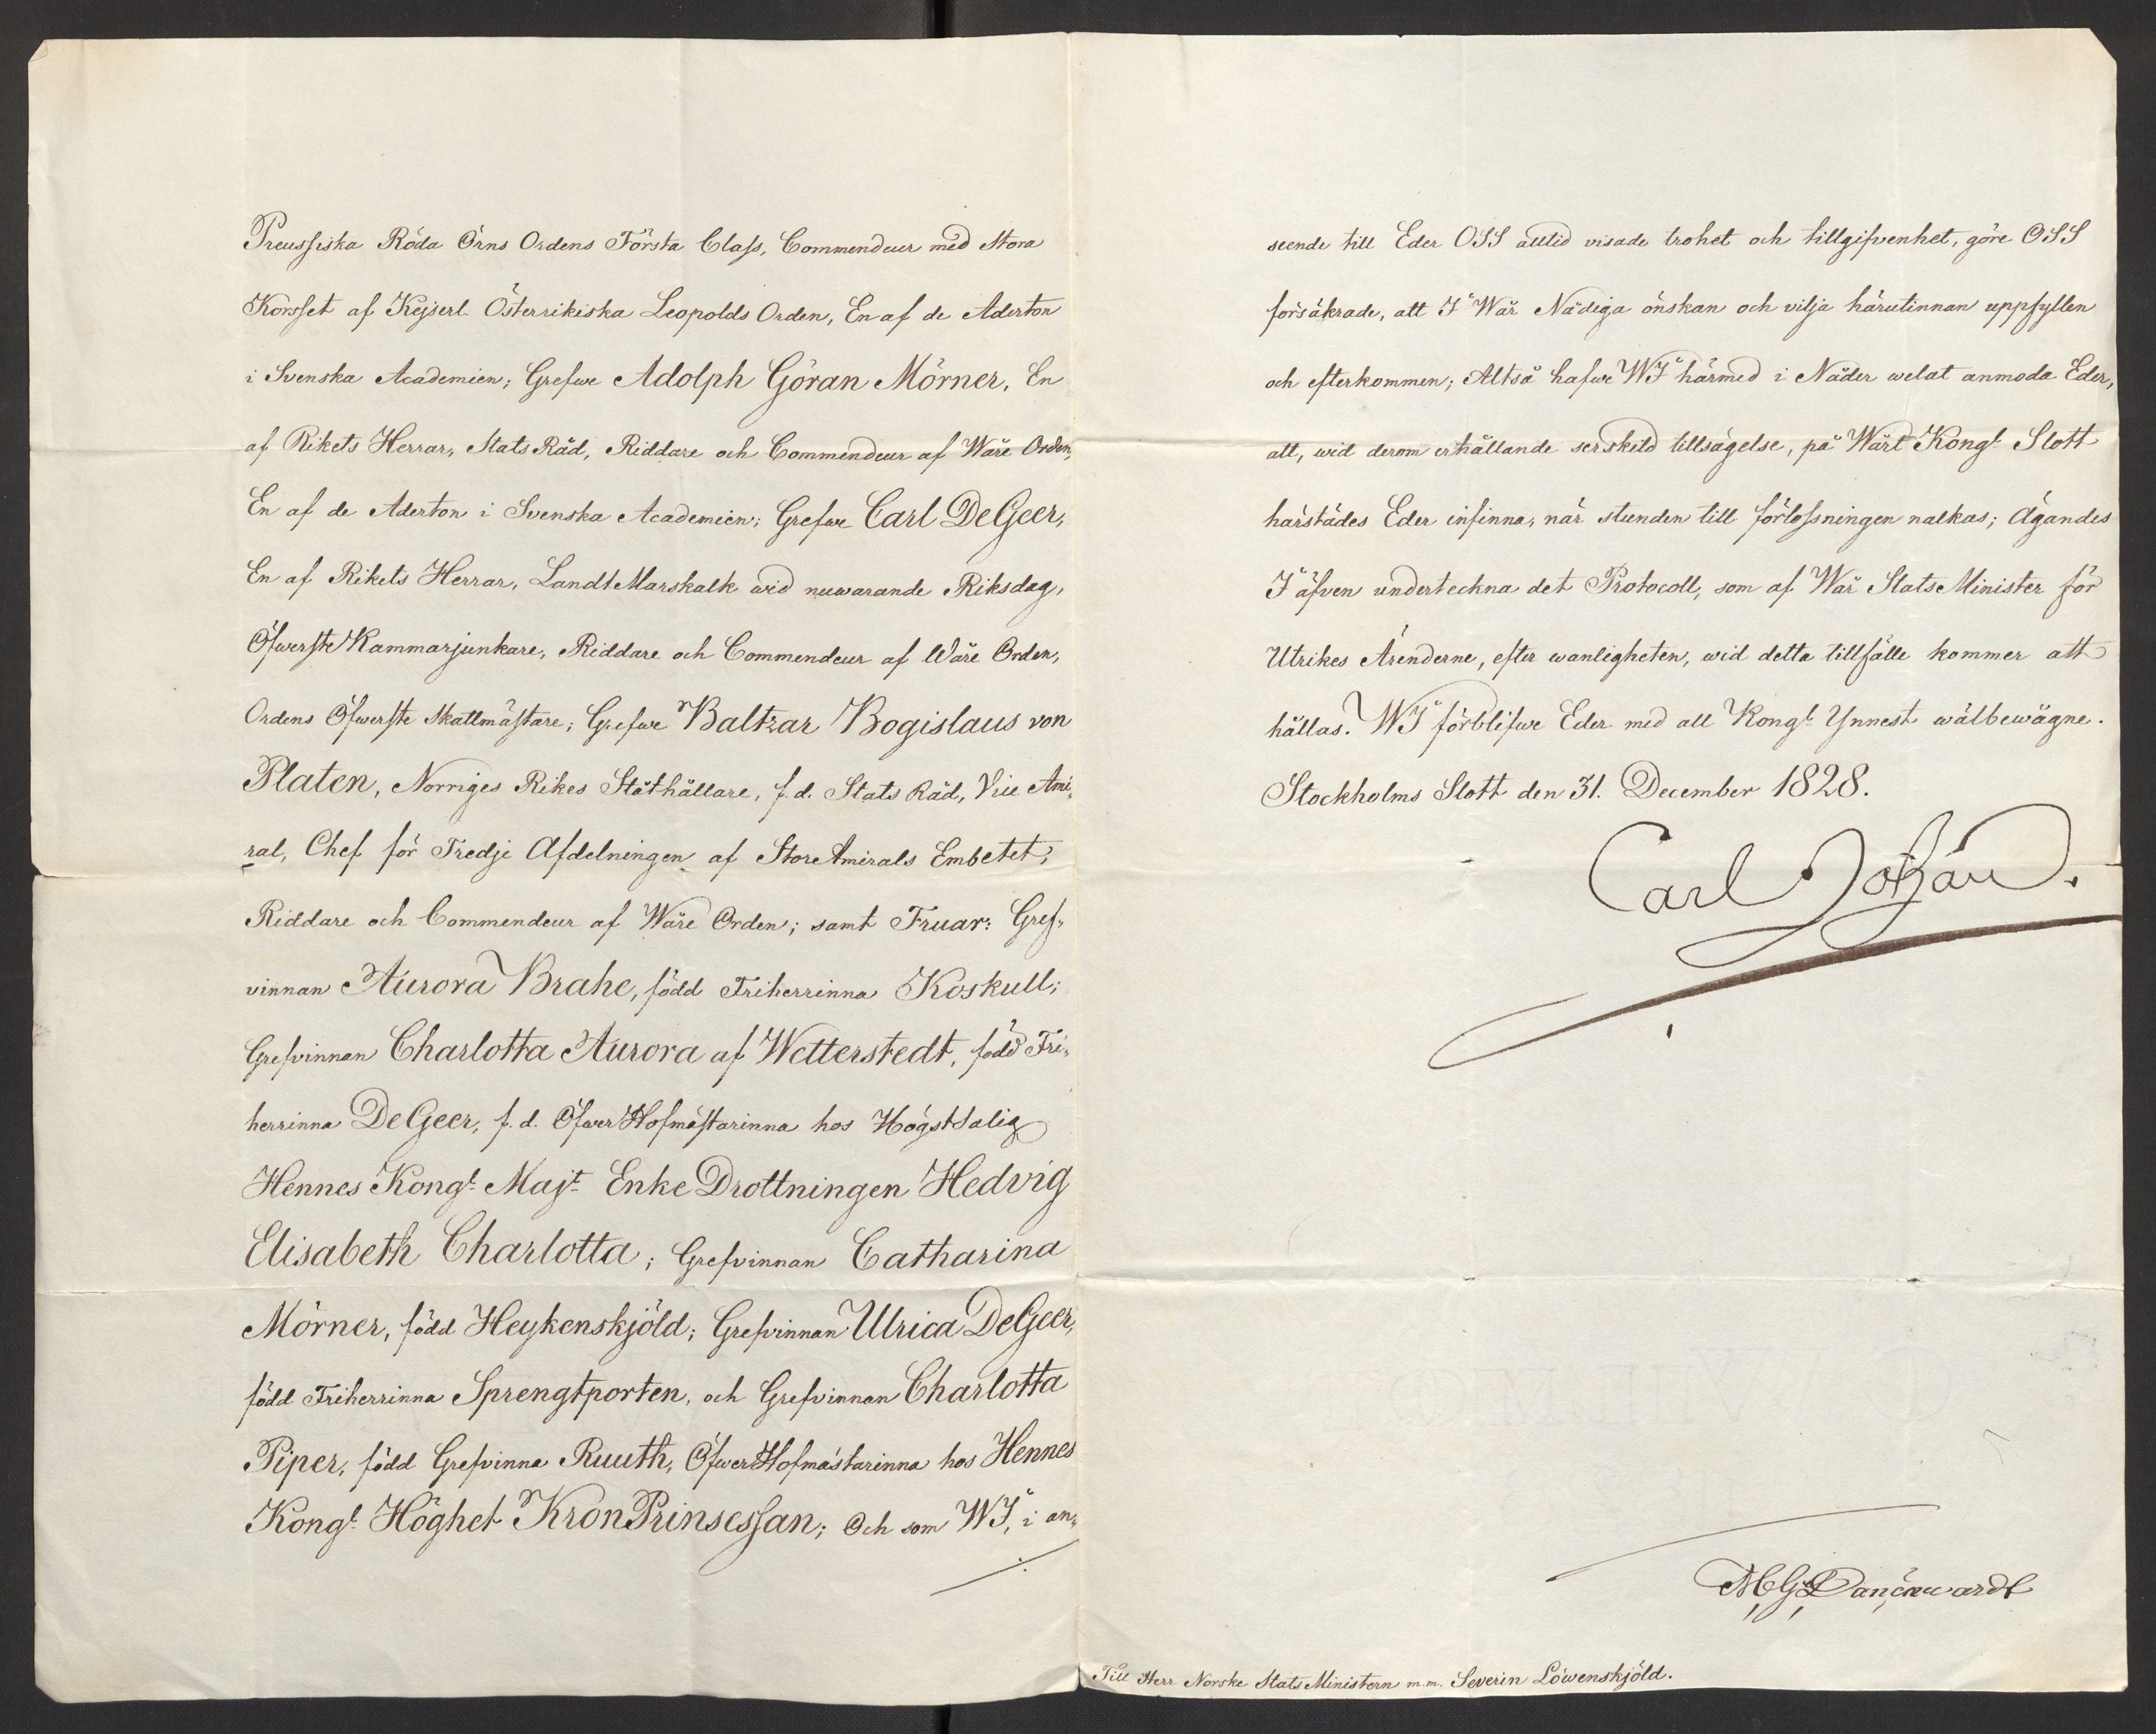 Preussiska Röda Örns Ordens Första Class, Commendeur med Stora
Korsset af Kejserl. Österrikiska Leopolds Orden, En af de Aderton
i Svenska Academien; Grefwe Adolph Göran Mörner, En
af Rikets Herrar, Stats Råd, Riddare och Commendeur af Wåre Orden,
En af de Aderton i Svenska Academien; Grefwe Carl De Geer,
En af Rikets Herrar, LandtMarskalk wid nuwarande Riksdag,
Öfwerste Kammarjunkare, Riddare och Commendeur af Wåre Orden,
Ordens Öfwerste Skattmästare; Grefwe Baltzar Bogislaus von
Platen, Norriges Rikes Ståthållare, f.d. Stats Råd, Vice Ami„
ral, Chef för Tredje Afdelningen af StoreAmirals Embetet,
Riddare och Commendeur af Wåre Orden; samt Fruar: Gref„
vinnan Aurora Brahe, född Friherrinna Koskull;
Grefvinnan Charlotta Aurora af Wetterstedt, född Fri„
herrinna De Geer, f.d. ÖfwerHofmästarinna hos HögstSalig
Hennes Kongl. Majt. EnkeDrottningen Hedvig
Elisabeth Charlotta; Grefvinnan Catharina
Mörner, född Heykenskjöld; Grefvinnan Ulrica De Geer,
född Friherrinna Sprengtporten, och Grefvinnan Charlotta
Piper, född Grefvinna Ruuth, ÖfwerHofmästarinna hos Hennes
Kongl. Höghet KronPrinsessan; Och som WI, i an„
seende till Eder OSS alltid visade trohet och tillgifvenhet, göre OSS
försäkrade, att I Wår Nådiga önskan och vilja härutinnan uppfyllen
och efterkommen; Altså hafwe WI härmed i Nåder welat anmoda Eder,
att, wid derom erhållande serskild tillsägelse, på Wårt Kongl. Slott
härstädes Eder infinna, när stunden till förlossningen nalkas; Ägandes
I äfven underteckna det Protocoll, som af Wår StatsMinister för
Utrikes Ärenderne, efter wanligheten, wid detta tillfälle kommer att
hållas. WI förblifwe Eder med all Kongl. Ynnest wälbewågne.
Stockholms Slott den 31. December 1828.
Carl Johan.
Danckwardt
Till Herr Norske StatsMinistern m.m. Severin Löwenskjöld.